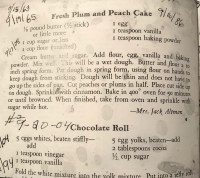 9/5/63
9/11/65
Fresh Plum and Peach Cake 9/10/86
¼ pound butter (½ stick)
or little more
1 cup sugar or less
1 cup flour
1 egg
1 teaspoon vanilla
1 teaspoon baking powder
Cream butter and sugar. Add flour, egg, vanilla and baking
powder. Mix well. This will be a wet dough. Butter and flour a
inch spring form. Put dough in spring form, using flour on hands to
keep dough from sticking. Dough will be thin and does not have to
go up the sides of pan. Cut peaches or plums in half. Place cut side
on dough. Sprinkle with cinnamon. Bake in 400° oven for
or until browned. When finished, take from oven and sprinkle with
sugar while hot.
Mrs. Jack
9-20-04
Chocolate Roll
5 egg whites, beaten stiffly—
add
1 teaspoon vinegar
1 teaspoon vanilla
5 egg yolks, beaten—add
2 tablespoons cocoa
½ cup sugar
Fold the white mixture into the yolk mixture. Put into